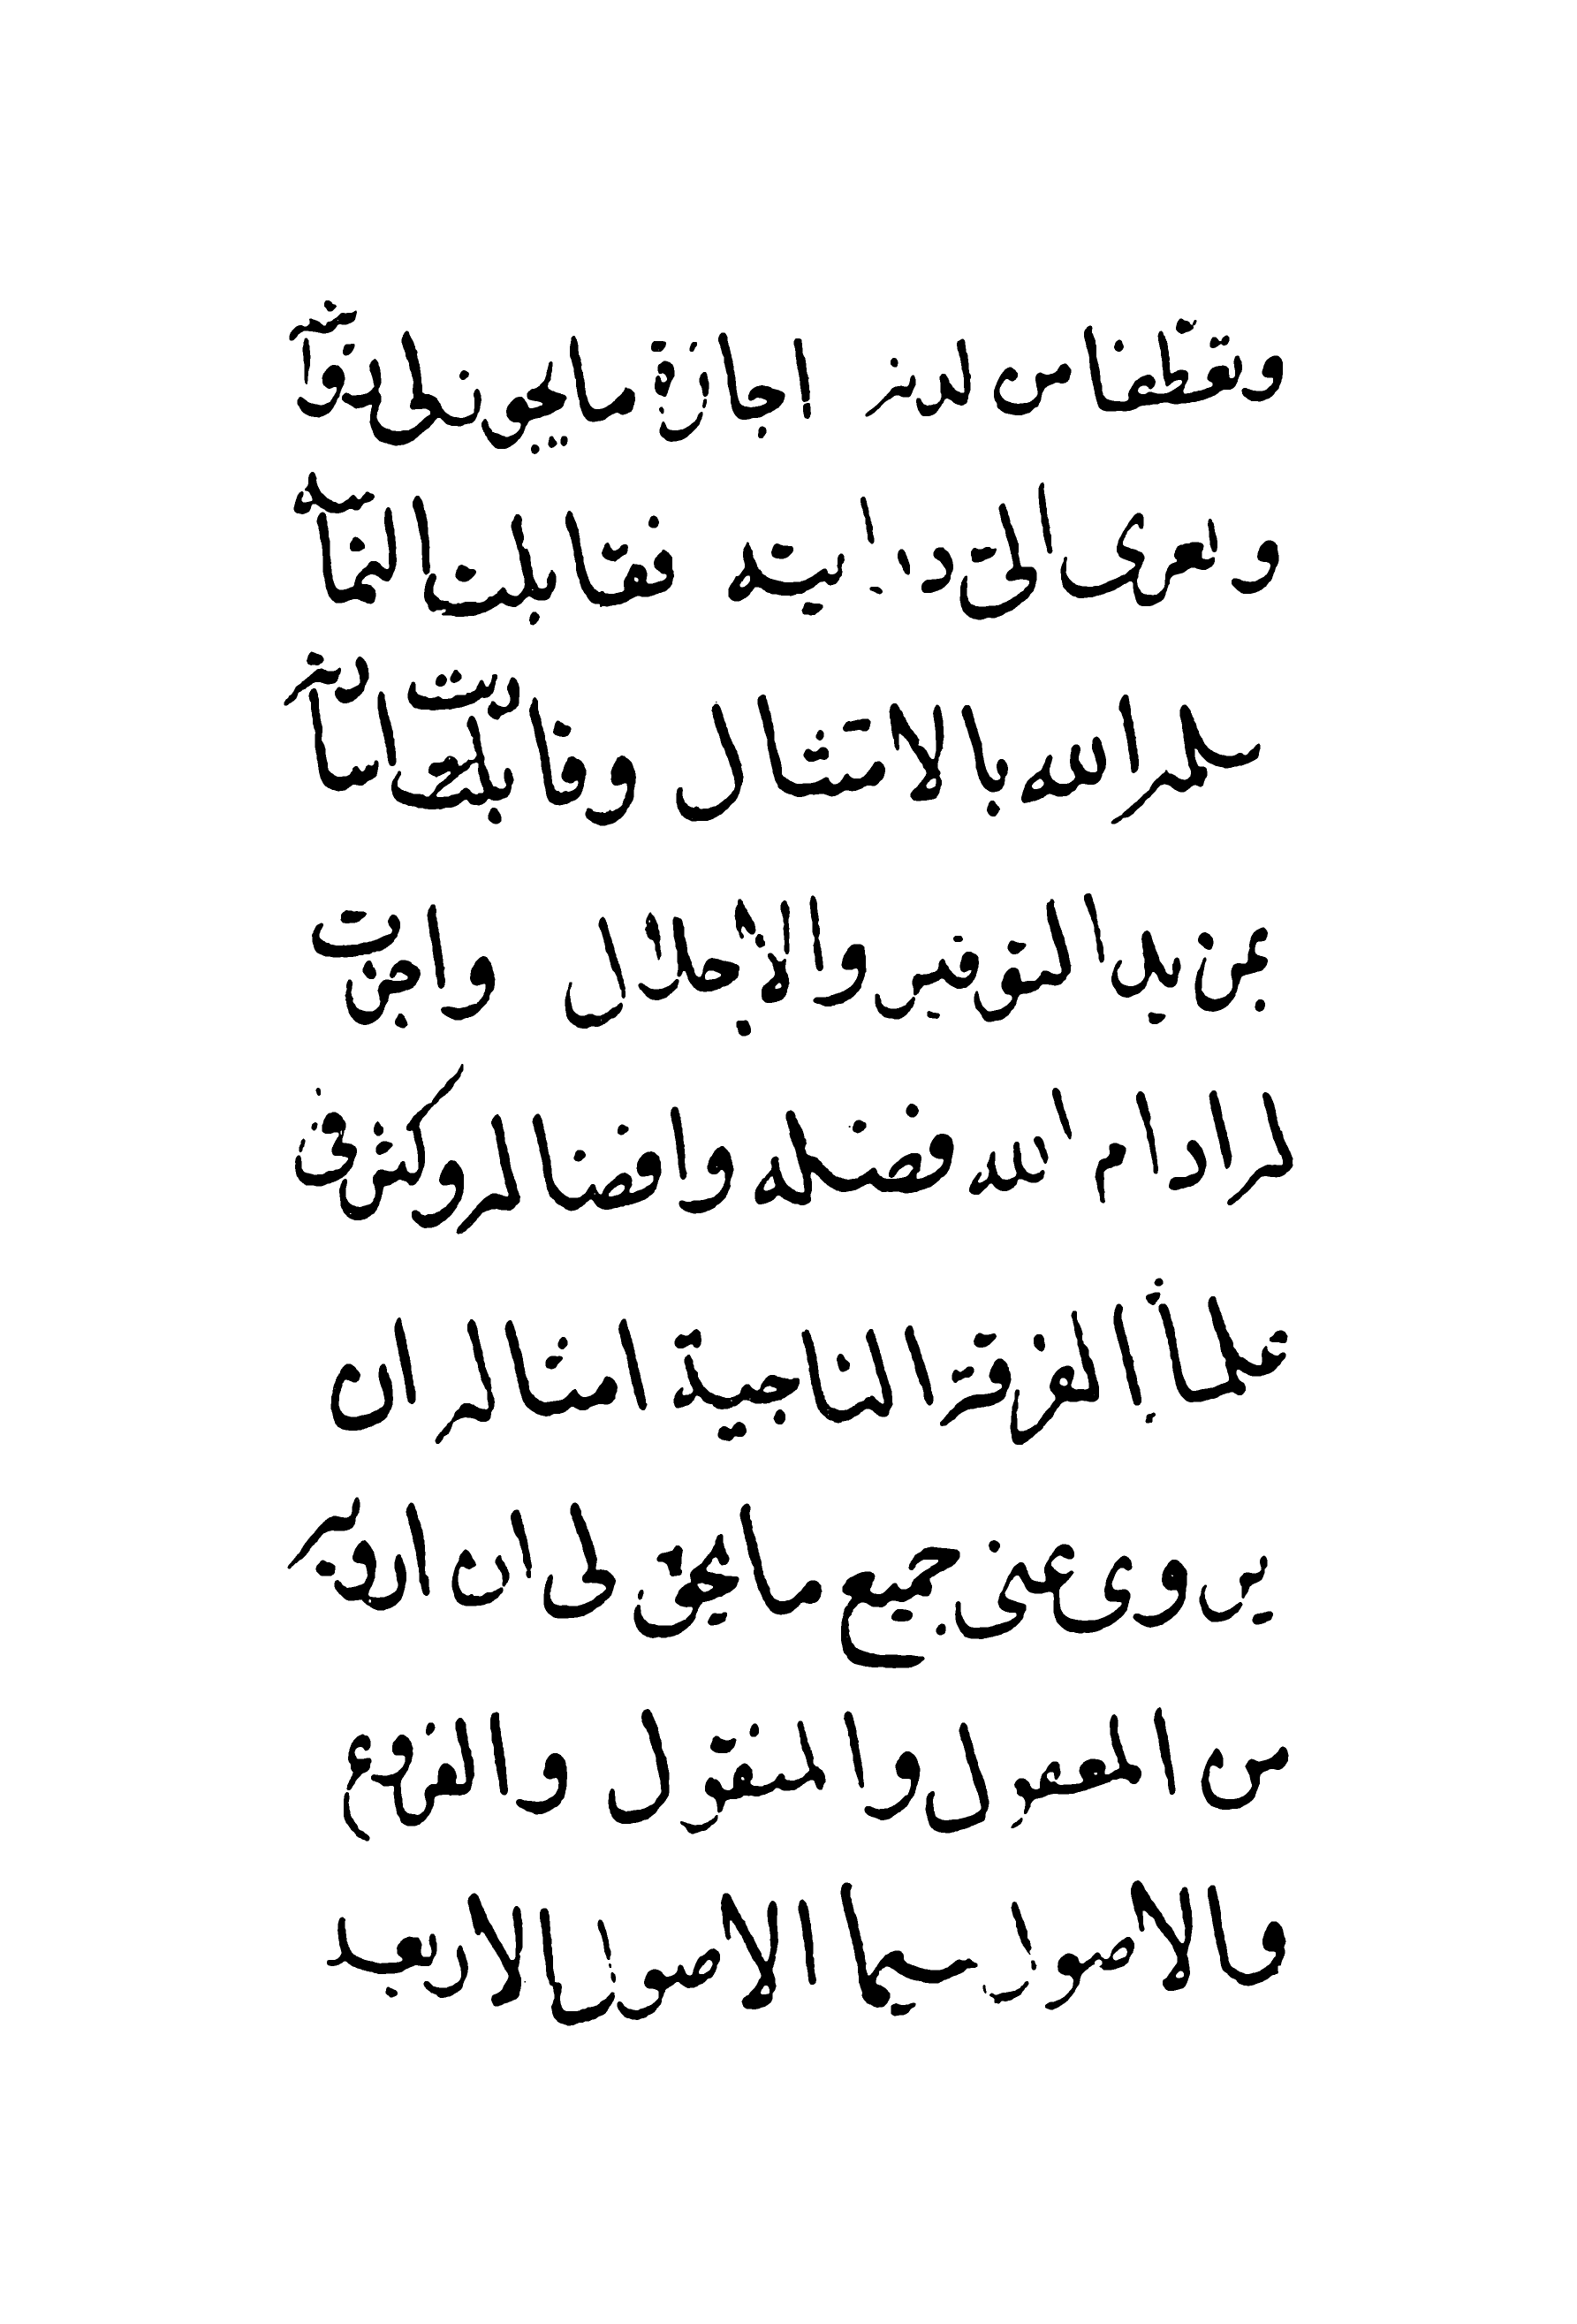 من لدنه اجازة ما يجوز لي
ويعزى الي درايته فقابلت التماسه
سلمه الله بالامتثال وقابلت
بمزيد التوقير والاجلال واجزت
له ادام الله فضله وافضاله وكثر في
علماء الفرقة الناجية امثاله ان
يروى عني جميع ما يحق لي ان ارويه
من المعقول والمنقول والفروع
والاصول سيما الاصول الاربعة